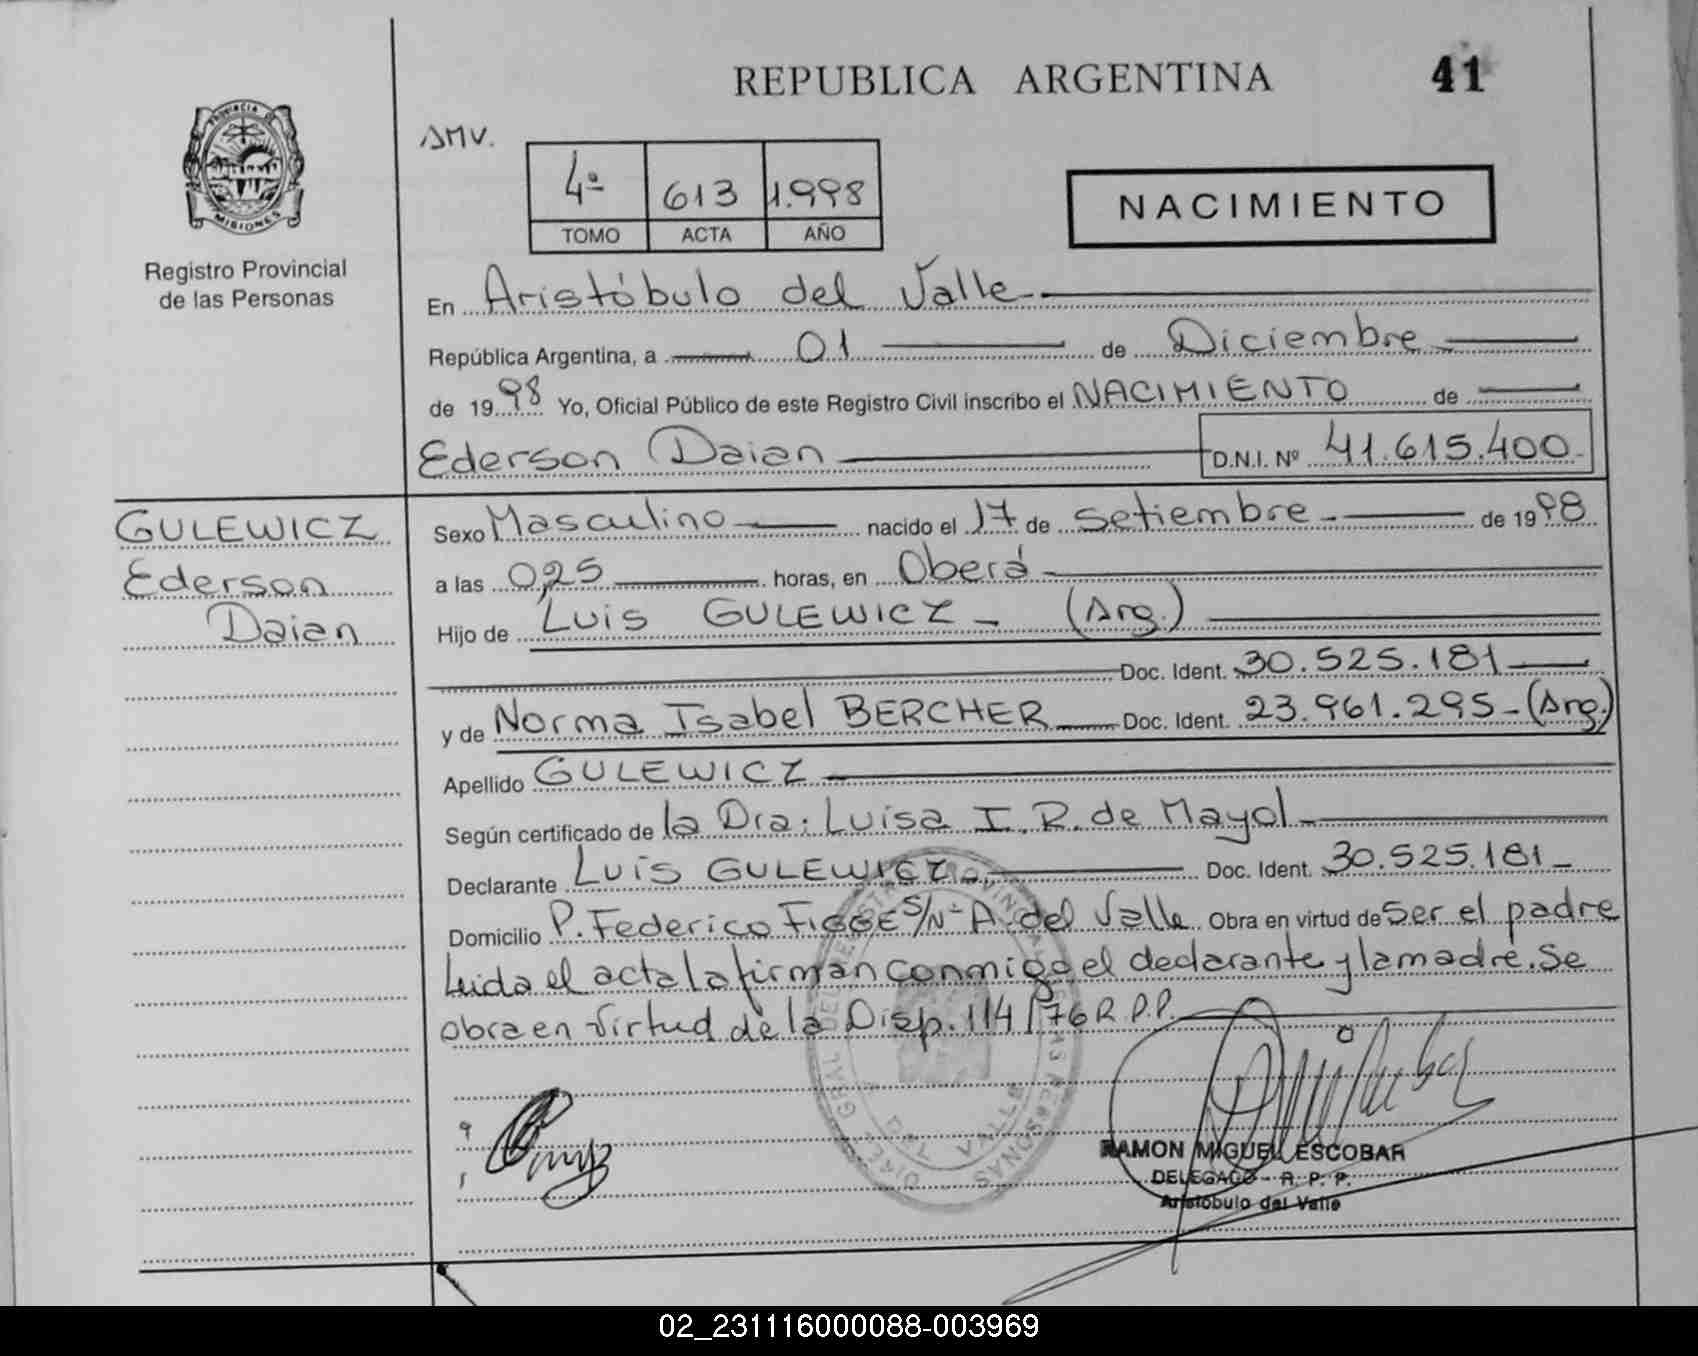 REPUBLICA ARGENTINA 41
PROVINCIA DE
MISIONES
Registro Provincial
de las Personas
AMV.
4º 613 1.998
TOMO ACTA AÑO
NACIMIENTO
En Aristóbulo del Valle
República Argentina, a 01 de Diciembre
de 1998 Yo, Oficial Público de este Registro Civil inscribo el NACIMIENTO de
Ederson Daian D.N.I. Nº 41.615.400
GULEWICZ
Ederson
Daian
Sexo Masculino nacido el 17 de Setiembre de 1998
a las 0,25 horas, en Oberá
Hijo de Luis GULEWICZ (Arg.)
Doc. Ident. 30.525.181
y de Norma Isabel BERCHER Doc. Ident. 23.961.295 (Arg.)
Apellido GULEWICZ
Según certificado de la Dra: Luisa I. R. de Mayol
Declarante Luis GULEWICZ Doc. Ident. 30.525.181
Domicilio P. Federico FIGGE S/Nº A. del Valle Obra en virtud de Ser el padre
Leida el acta la firman conmigo el declarante y la madre. Se
obra en virtud de la Disp. 114/76 R.P.P.
RAMON MIGUEL ESCOBAR
DELEGADO - R. P. P.
Aristobulo del Valle
02_231116000088-003969